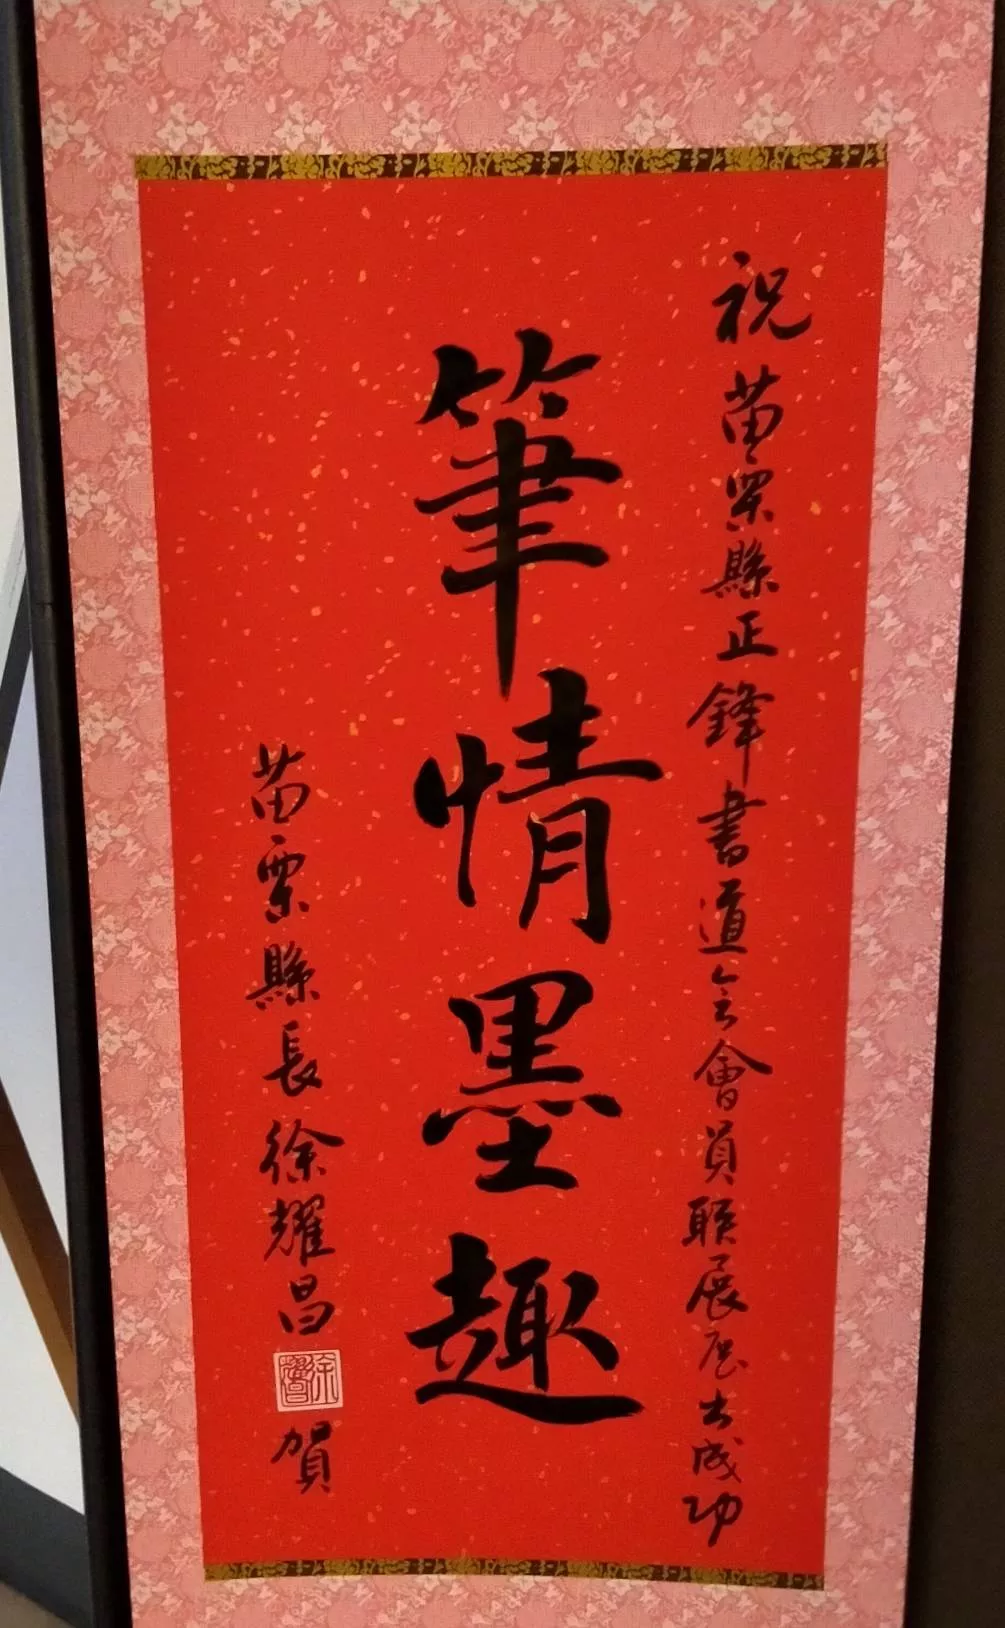 祝苗栗縣正鋒書道会會員聯展展出成功
筆情墨趣
苗栗縣長徐耀昌賀